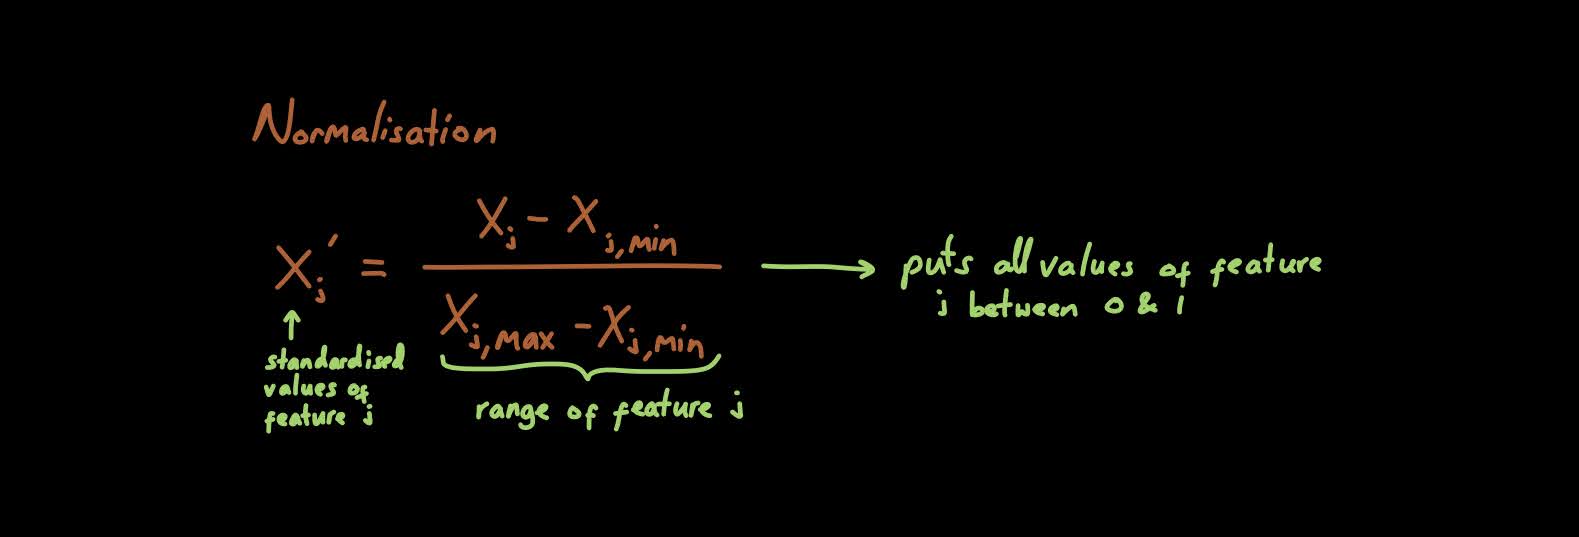 Normalisation
X_j' = (X_j - X_{j,min}) / (X_{j,max} - X_{j,min})
puts all values of feature
j between 0 & 1
standardised
values of
feature j
range of feature j